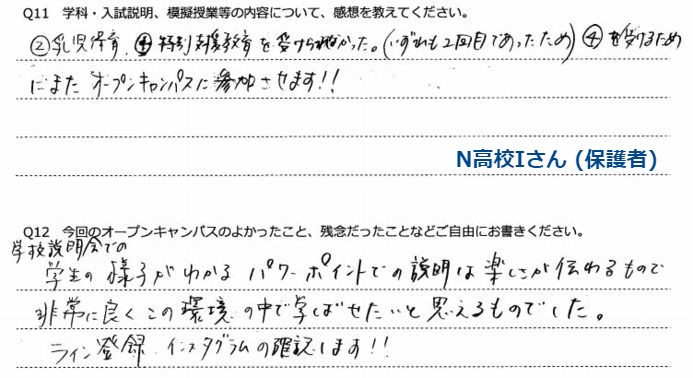 Q11 学科・入試説明、模擬授業等の内容について、感想を教えてください。
②乳児保育、④特別支援教育を受けられなかった。(いずれも2回目であったため) ④を受けるため
にまたオープンキャンパスに参加させます!!
N高校Iさん (保護者)
Q12 今回のオープンキャンパスのよかったこと、残念だったことなどご自由にお書きください。
学校説明会での
学生の様子がわかるパワーポイントでの説明は楽しさが伝わるもので
非常に良くこの環境の中で学ばせたいと思えるものでした。
ライン登録、インスタグラムの確認します!!